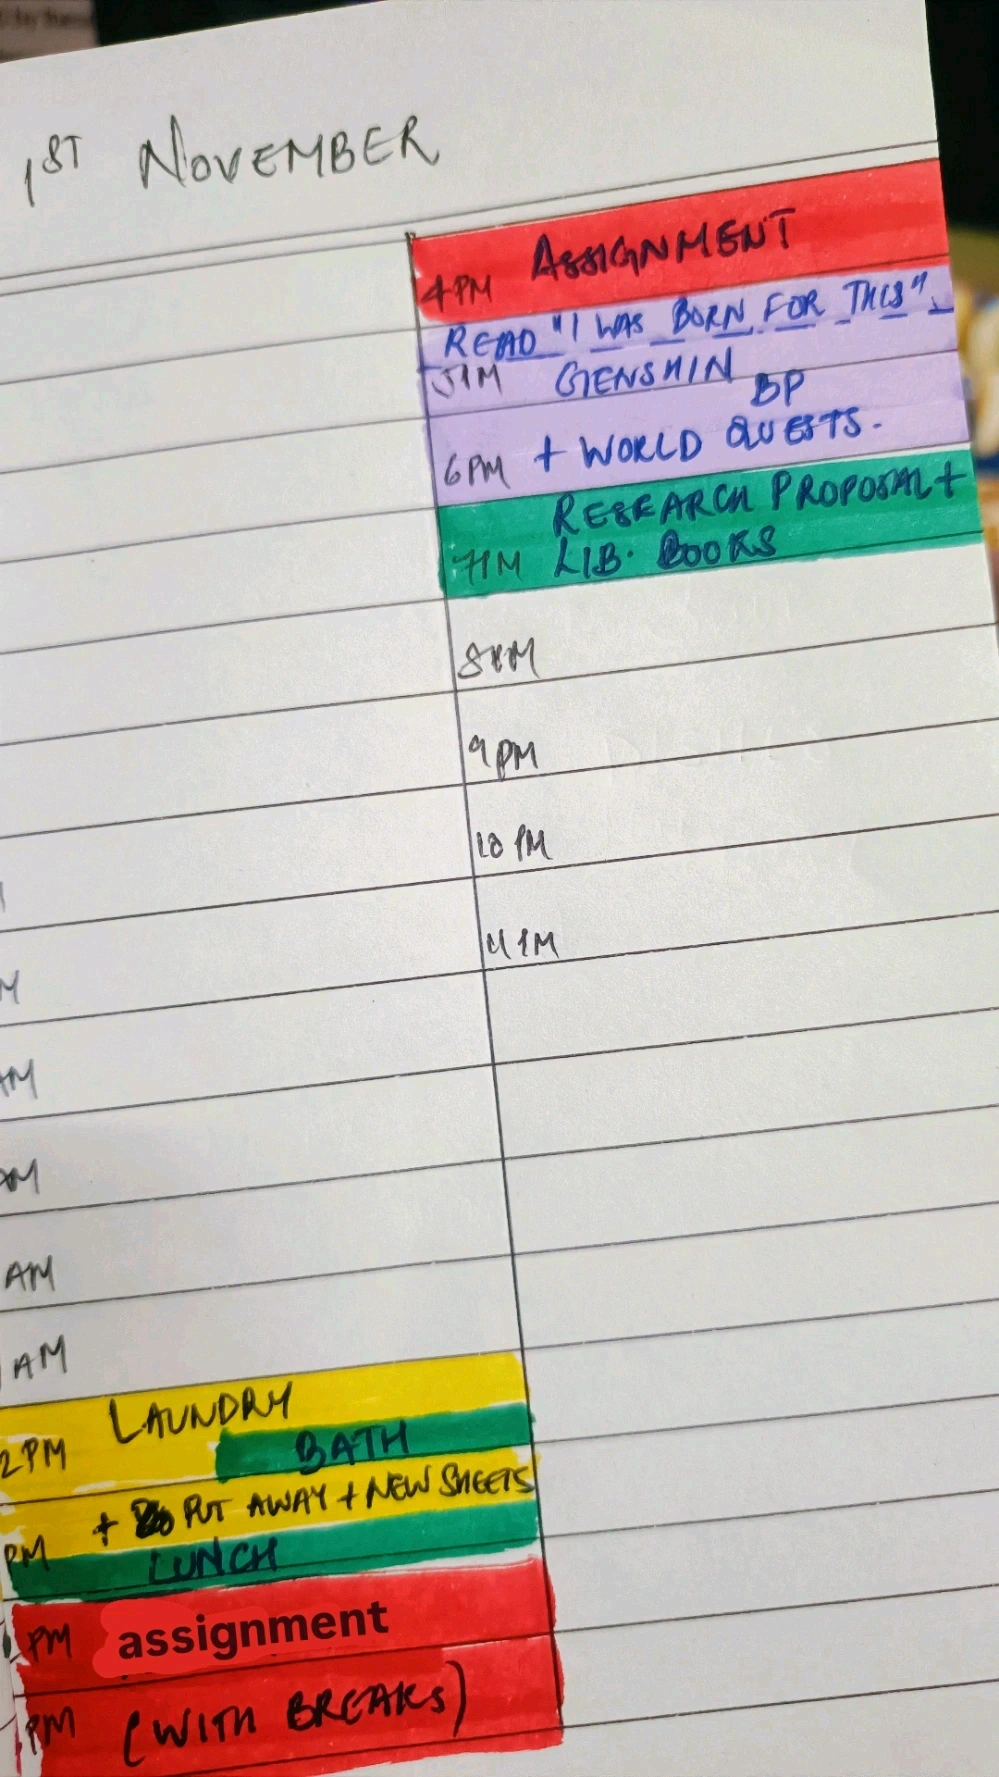 1ST NOVEMBER
AM
AM
LAUNDRY
2PM
BATH
+ PUT AWAY + NEW SHEETS
PM
LUNCH
PM assignment
PM (WITH BREAKS)
ASSIGNMENT
4PM
READ "I WAS BORN FOR THIS".
5PM GENSHIN
BP
6PM + WORLD QUESTS.
RESEARCH PROPOSAL +
7PM LIB. BOOKS
8PM
9PM
10 PM
11PM